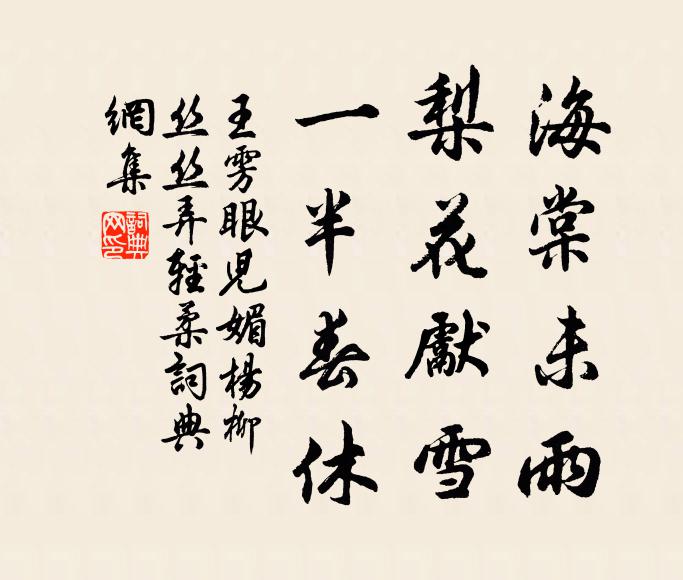 海棠未雨
梨花獻雪
一半春休
王雱眼児媚楊柳
丝丝弄輕柔詞典
網集
詞典
网印